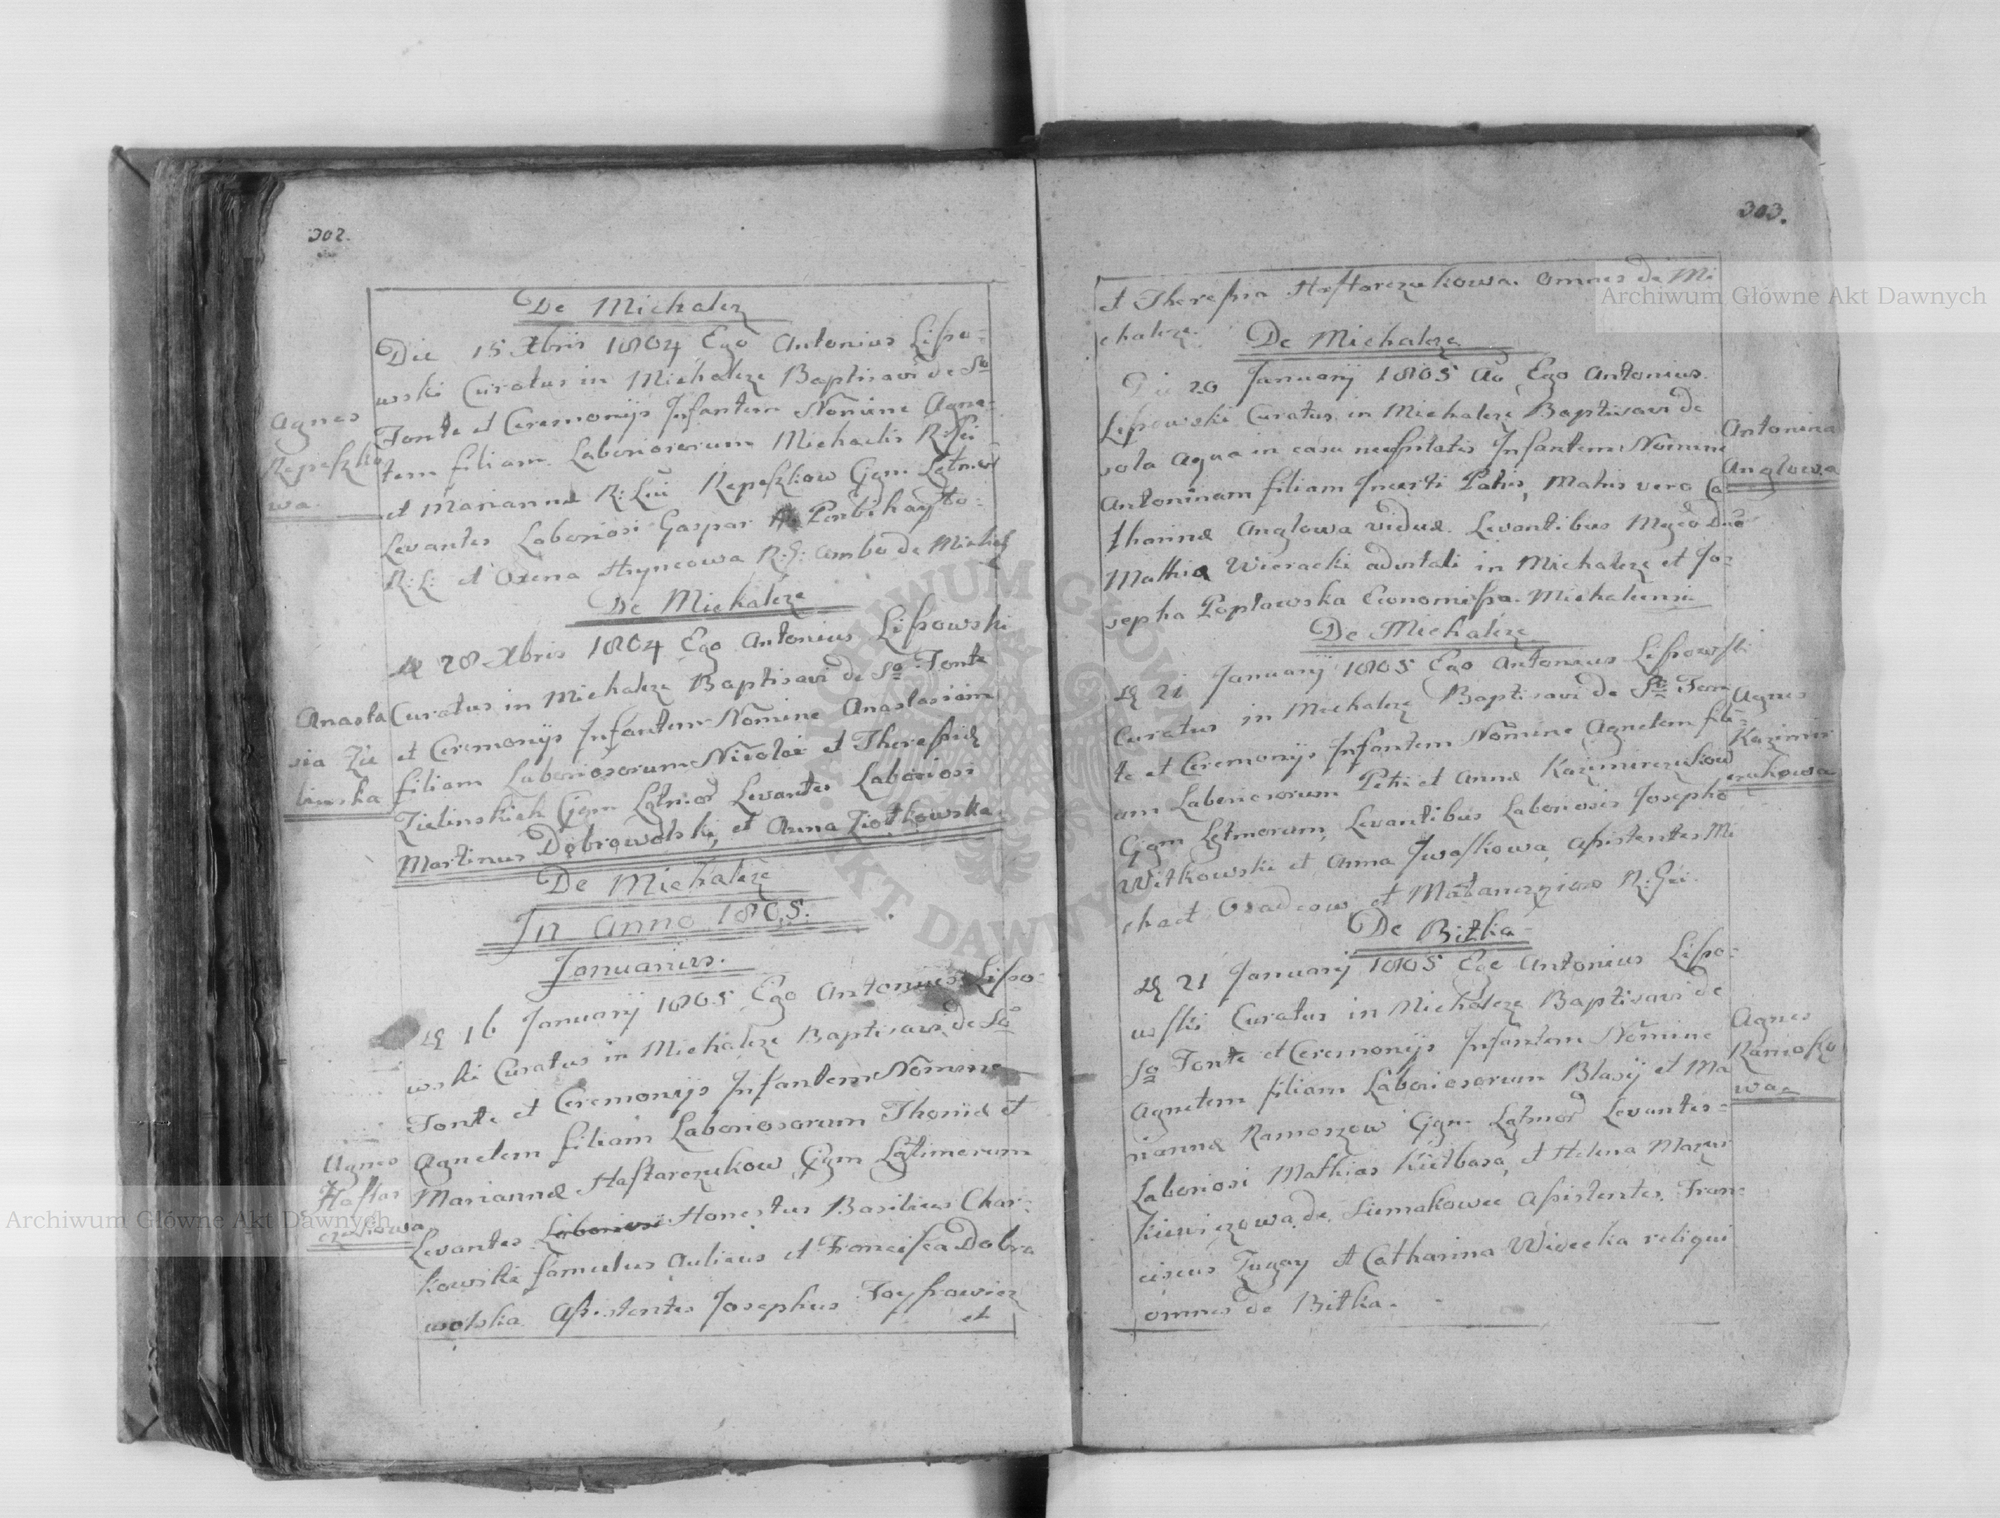 302.
De Michalcz
Die 15 Xbris 1804 Ego Antonius Lipo-
wski Curatus in Michalcze Baptisavi de So
Fonte et Ceremonijs Infantem Nomine Agne-
tem filiam Laboriosorum Michaelis R: Gi
et Mariannæ R: Lui Repeszkow Cjgm Lgtmor
Levantes Laboriosi Gaspar
R: L: et Oxena Hryncowa R: G: ambo de Michalcz
Agnes
Repeszko
wa.
De Michalcze
28 Xbris 1804 Ego Antonius Lipowski
Curatus in Michalcze Baptisavi de So Fonte
et Ceremonijs Infantem Nomine Anastasiam
filiam Laboriosorum Nicolai et Theresiæ
Zielinskich Cjgm Lgtmor Levantes Laboriosi
Martinus Dobrowolski, et Anna Ziołkowska
Anasta
sia Zie
linska
De Michalcze
In Anno 1805.
Januarius.
16 Januarij 1805 Ego Antonius Lipo-
wski Curatus in Michalcze Baptisavi de So
Fonte et Ceremonijs Infantem Nomine
Agnetem filiam Laboriosorum Thomæ et
Mariannæ Haftarczukow Cjgm Lgtimorum
Levantes Laboriosi Honestus Basilius Char-
kowski famulus aulicus et Francisca Dobro
wolska Assistentes Josephus
et
Agnes
Haftar
czukowa
303.
et Theresia Haftarczukowa. omnes de Mi
chalcze.
De Michalcze
Die 20 Januarij 1805 Ao Ego Antonius
Lipowski Curatus in Michalcze Baptisavi de
sola aqua in casu necessitatis Infantem Nomine
Antoninam filiam Incerti Patris, Matris vero Ca-
tharinæ Anglowa viduæ. Levantibus Mgco Dno
Mathia Wieracki adestali in Michalcze et Jo-
sepha Popławska Economissa Michalcensi
Antonina
Anglowa
De Michalcze
21 Januarij 1805 Ego Antonius Lipowski
Curatus in Michalcze Baptisavi de Sto Fon
te et Ceremonijs Infantem Nomine Agnetem fili-
am Laboriosorum Petri et Annæ Kazimirczukow
Cjgm Lgtmorum, Levantibus Laboriosis Josepho
Witkowski et Anna Iwaskowa, Assistentes Mi
chael Osadcow et R: Gi.
Agnes
Kazimir
czukowa
De Bitka
21 Januarij 1805 Ego Antonius Lipo-
wski Curatus in Michalcze Baptisavi de
So Fonte et Ceremonijs Infantem Nomine
Agnetem filiam Laboriosorum Blasij et Ma
riannæ Ramoszow Cjgm Lgtmor Levantes-
Laboriosi Mathias Kiełbasa, et Helena Marci
Kiewiczowa de Siemakowce Assistentes Fran-
ciscus Fugay et Catharina Wisecka reliqui
omnes de Bitka.
Agnes
Ramoszo
waa
Archiwum Główne Akt Dawnych
Archiwum Główne Akt Dawnych
ARCHIWUM GŁÓWNE AKT DAWNYCH